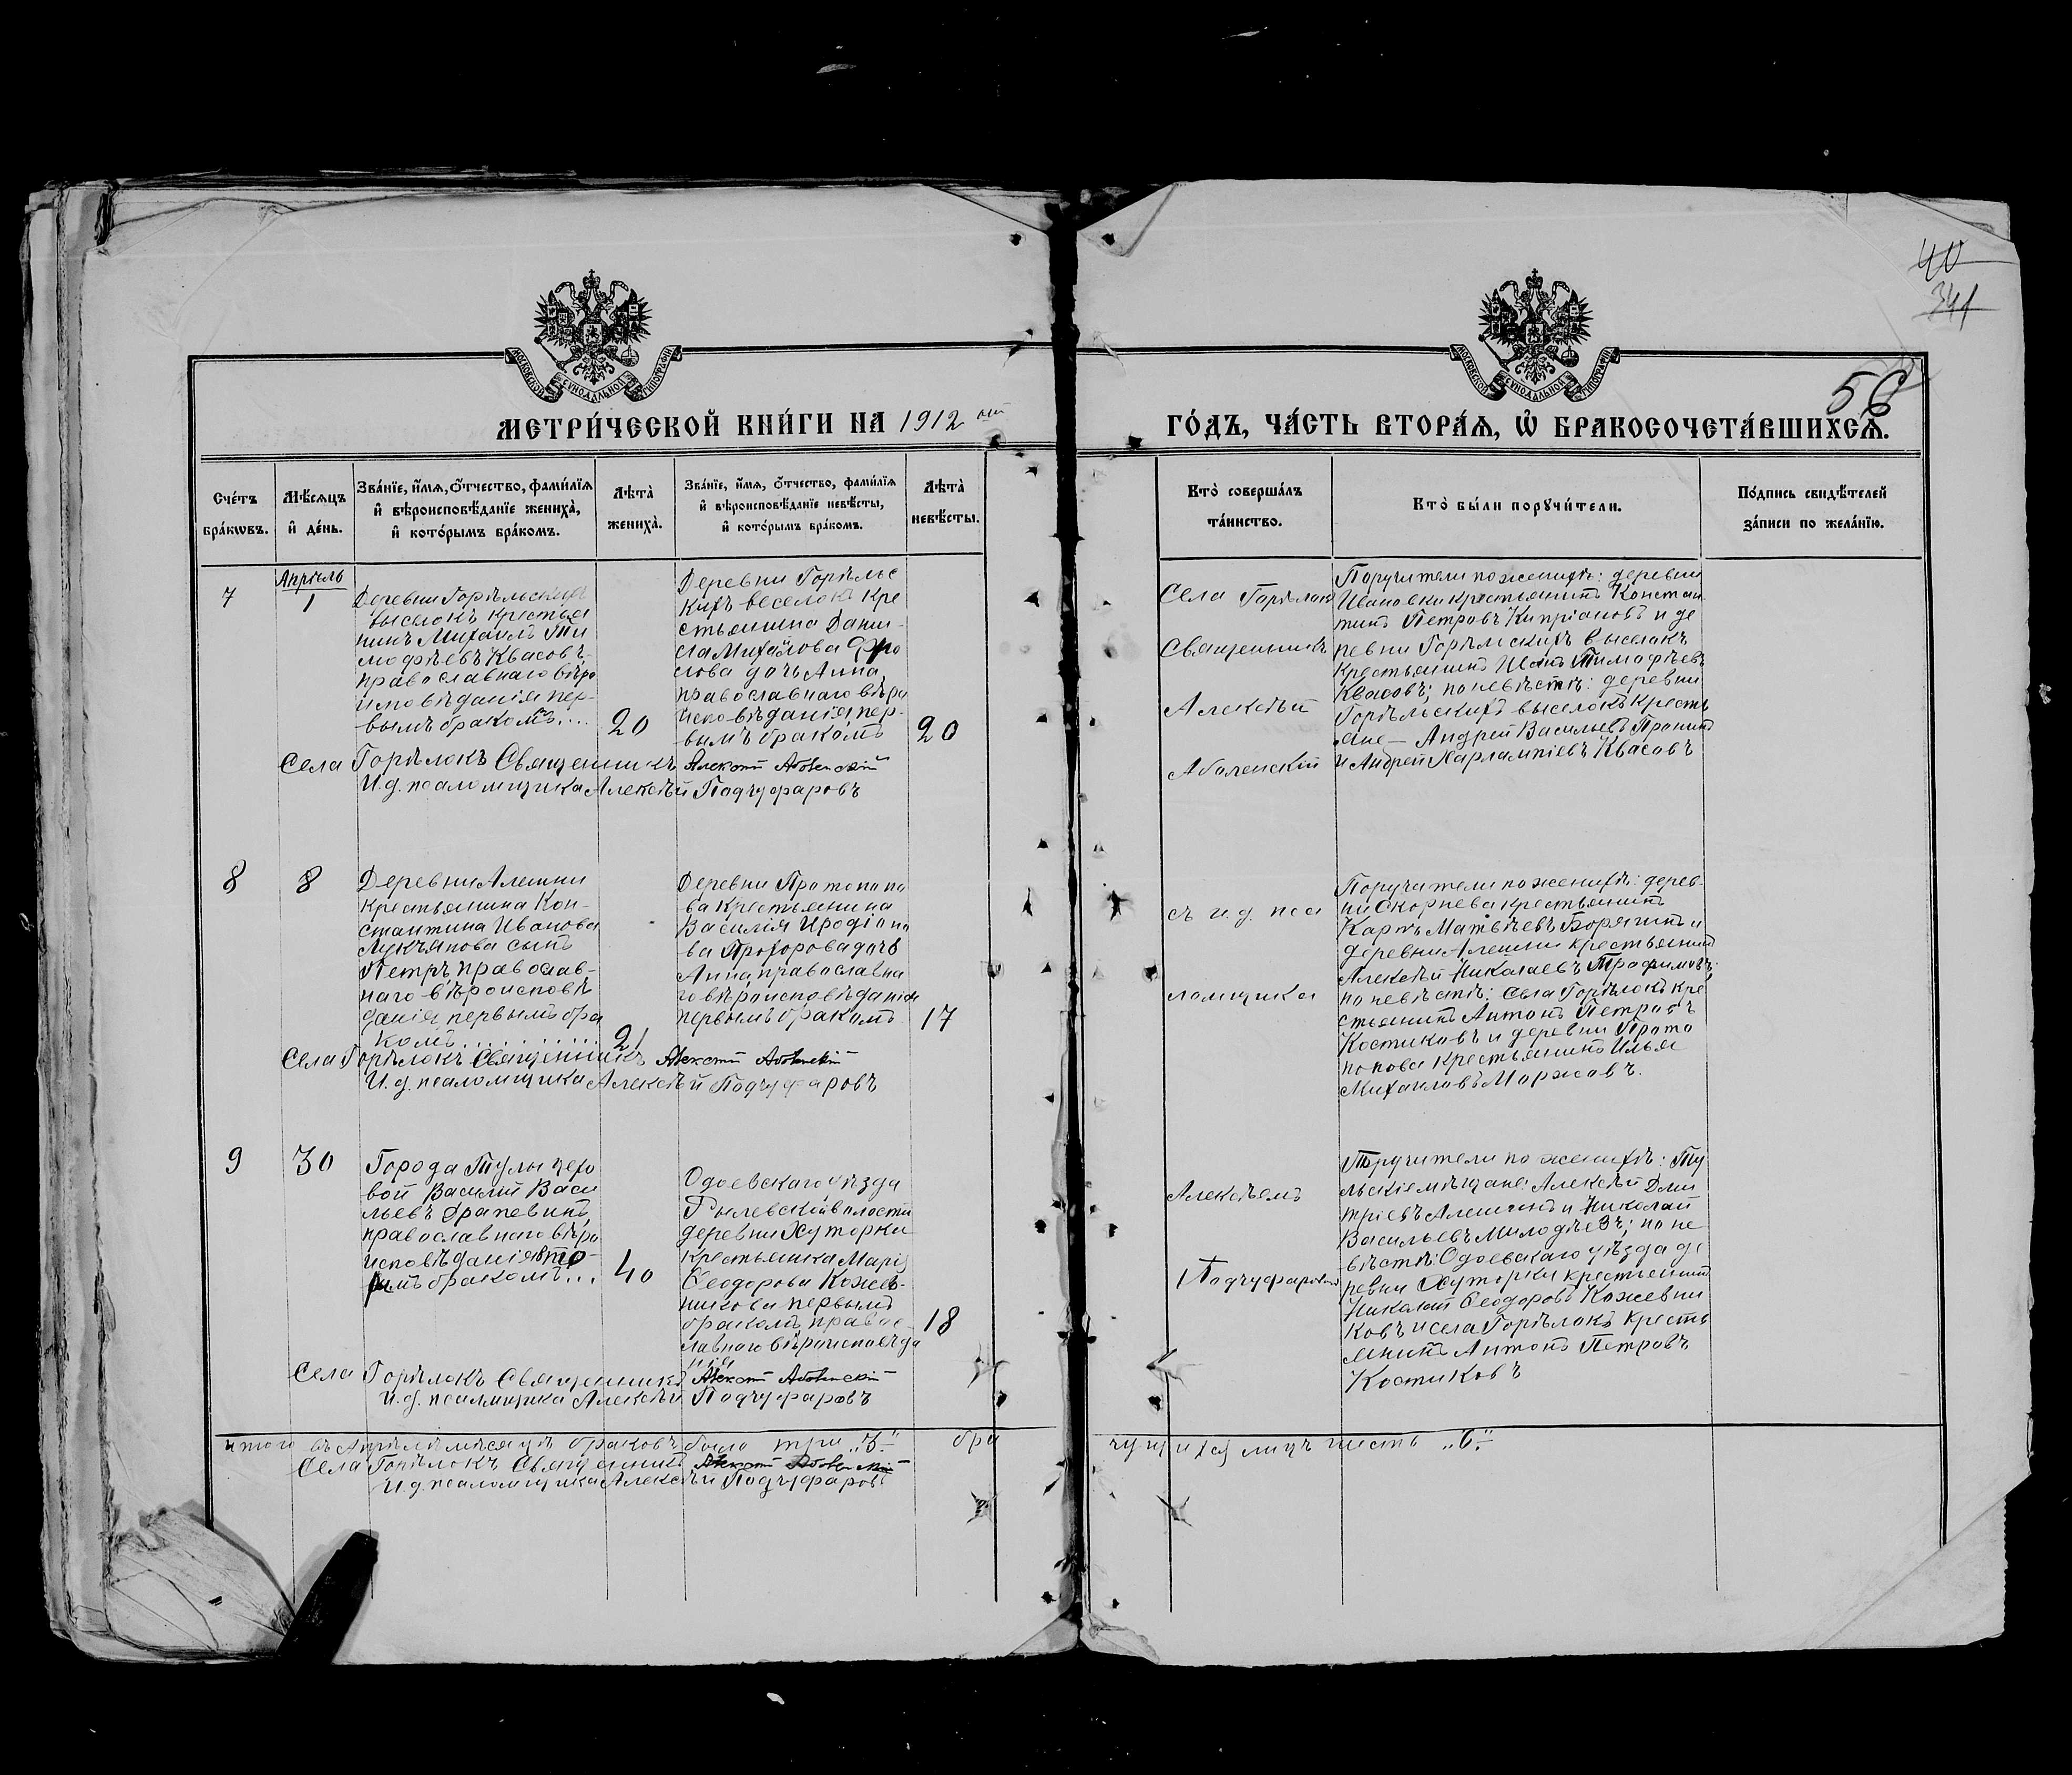 40
341
56
МОСКОВСКОЙ СѴНОДАЛЬНОЙ ТИПОГРАФІИ
МОСКОВСКОЙ СѴНОДАЛЬНОЙ ТИПОГРАФІИ
МЕТРИ́ЧЕСКОЙ КНИ́ГИ НА 1912
ГО́ДЪ, ЧА́СТЬ ВТОРА́Я, Ѡ҆ БРАКОСОЧЕТА́ВШИХСЯ.
Сче́тъ бра́кѡвъ.
Мѣ́сяцъ и҆ де́нь.
Зва́нїе, и҆́мя, ѻ҆́тчество, фами́лїя и҆ вѣроисповѣ́данїе жениха̀, и҆ кото́рымъ бра́комъ.
Лѣта̀ жениха̀.
Зва́нїе, и҆́мя, ѻ҆́тчество, фами́лїя и҆ вѣроисповѣ́данїе невѣ́сты, и҆ кото́рымъ бра́комъ.
Лѣта̀ невѣ́сты.
Кто̀ соверша́лъ та́инство.
Кто̀ бы́ли порꙋчи́тели.
По́дпись свидѣ́телей за́писи по жела́нїю.
7
Апрѣль
1
Деревни Горѣльскихъ
выселокъ крестья
нинъ Михаилъ Ти
мофѣевъ Квасовъ,
православнаго вѣро
исповѣданія, пер-
вымъ бракомъ...
20
Деревни Горѣльс
кихъ веселокъ кре
стьянина Дани-
ла Михайлова Фро
лова дочь Анна,
православнаго вѣро
исповѣданія, пер-
вымъ бракомъ
20
Села Горѣлокъ
Священникъ
Алексѣй
Аболенскій
Поручители по женихѣ: деревни
Ивановки крестьянинъ Констан
тинъ Петровъ Кипріановъ и де
ревни Горѣльскихъ выселокъ
крестьянинъ Иванъ Тимофѣевъ
Квасовъ; по невѣстѣ: деревни
Горѣльскихъ выселокъ кресть
яне — Андрей Васильевъ Пронинъ
и Андрей Харлампіевъ Квасовъ
Села Горѣлокъ Священникъ Алексѣй Аболенскій
И.д. псаломщика Алексѣй Подчуфаровъ
8
8
Деревни Алешни
крестьянина Кон-
стантина Иванова
Лукьянова сынъ
Петръ, православ-
наго вѣроисповѣ
данія, первымъ бра
комъ..........
21
Деревни Протопопо
ва крестьянина
Василія Иродіоно
ва Прохорова дочь
Анна, православна
го вѣроисповѣданія
первымъ бракомъ
17
съ и.д. пса
ломщика
Поручители по женихѣ: дерев-
ни Скорнева крестьянинъ
Карпъ Матвѣевъ Борягинъ и
деревни Алешни крестьянинъ
Алексѣй Николаевъ Трофимовъ;
по невѣстѣ: села Горѣлокъ кре
стьянинъ Антонъ Петровъ
Костиковъ и деревни Прото
попова крестьянинъ Илья
Михаиловъ Моржовъ.
Села Горѣлокъ Священникъ Алексѣй Аболенскій
И.д. псаломщика Алексѣй Подчуфаровъ
9
30
Города Тулы цехо
вой Василій Васи
льевъ Драпевинъ,
православнаго вѣро
исповѣданія, вто-
рымъ бракомъ...
40
Одоевскаго уѣзда
Рылевской волости
деревни Хуторки
крестьянка Марія
Ѳеодорова Кожев-
никова первымъ
бракомъ, правос
лавнаго вѣроисповѣда
нія
18
Алексѣемъ
Подчуфаровымъ
Поручители по женихѣ: Ту
льскіе мѣщане: Алексѣй Дми
тріевъ Алешинъ и Николай
Васильевъ Милодѣевъ; по не
вѣстѣ: Одоевскаго уѣзда де
ревни Хуторки крестьянинъ
Николай Ѳеодоровъ Кожевни
ковъ и села Горѣлокъ кресть
янинъ Антонъ Петровъ
Костиковъ
Села Горѣлокъ Священникъ Алексѣй Аболенскій
И.д. псаломщика Алексѣй Подчуфаровъ
итого въ Апрѣлѣ мѣсяцѣ браковъ было три „3.“ бра
чущихся лицъ шесть „6.“
Села Горѣлокъ Священникъ Алексѣй Аболенскій
И.д. псаломщика Алексѣй Подчуфаровъ